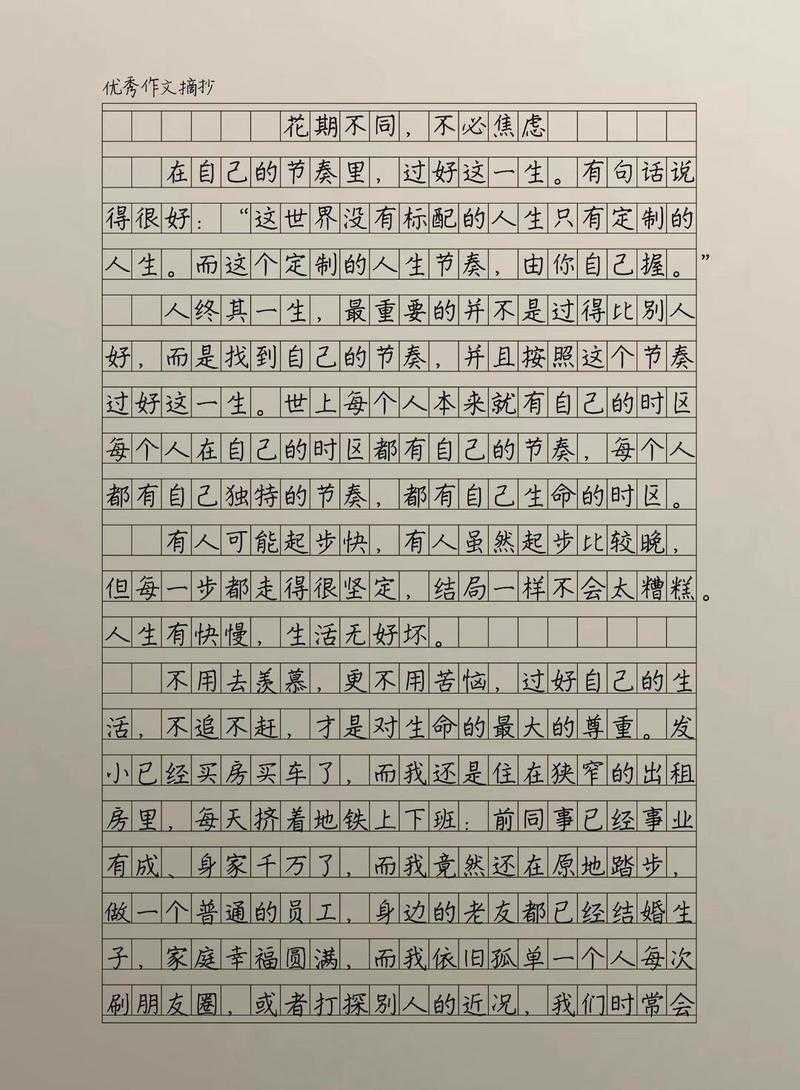 优秀作文摘抄
花期不同，不必焦虑
在自己的节奏里，过好这一生。有句话说
得很好：“这世界没有标配的人生只有定制的
人生。而这个定制的人生节奏，由你自己握。”
人终其一生，最重要的并不是过得比别人
好，而是找到自己的节奏，并且按照这个节奏
过好这一生。世上每个人本来就有自己的时区
每个人在自己的时区都有自己的节奏，每个人
都有自己独特的节奏，都有自己生命的时区。
有人可能起步快，有人虽然起步比较晚，
但每一步都走得很坚定，结局一样不会太糟糕。
人生有快慢，生活无好坏。
不用去羡慕，更不用苦恼，过好自己的生
活，不追不赶，才是对生命的最大的尊重。发
小已经买房买车了，而我还是住在狭窄的出租
房里，每天挤着地铁上下班；前同事已经事业
有成、身家千万了，而我竟然还在原地踏步，
做一个普通的员工，身边的老友都已经结婚生
子，家庭幸福圆满，而我依旧孤单一个人每次
刷朋友圈，或者打探别人的近况，我们时常会